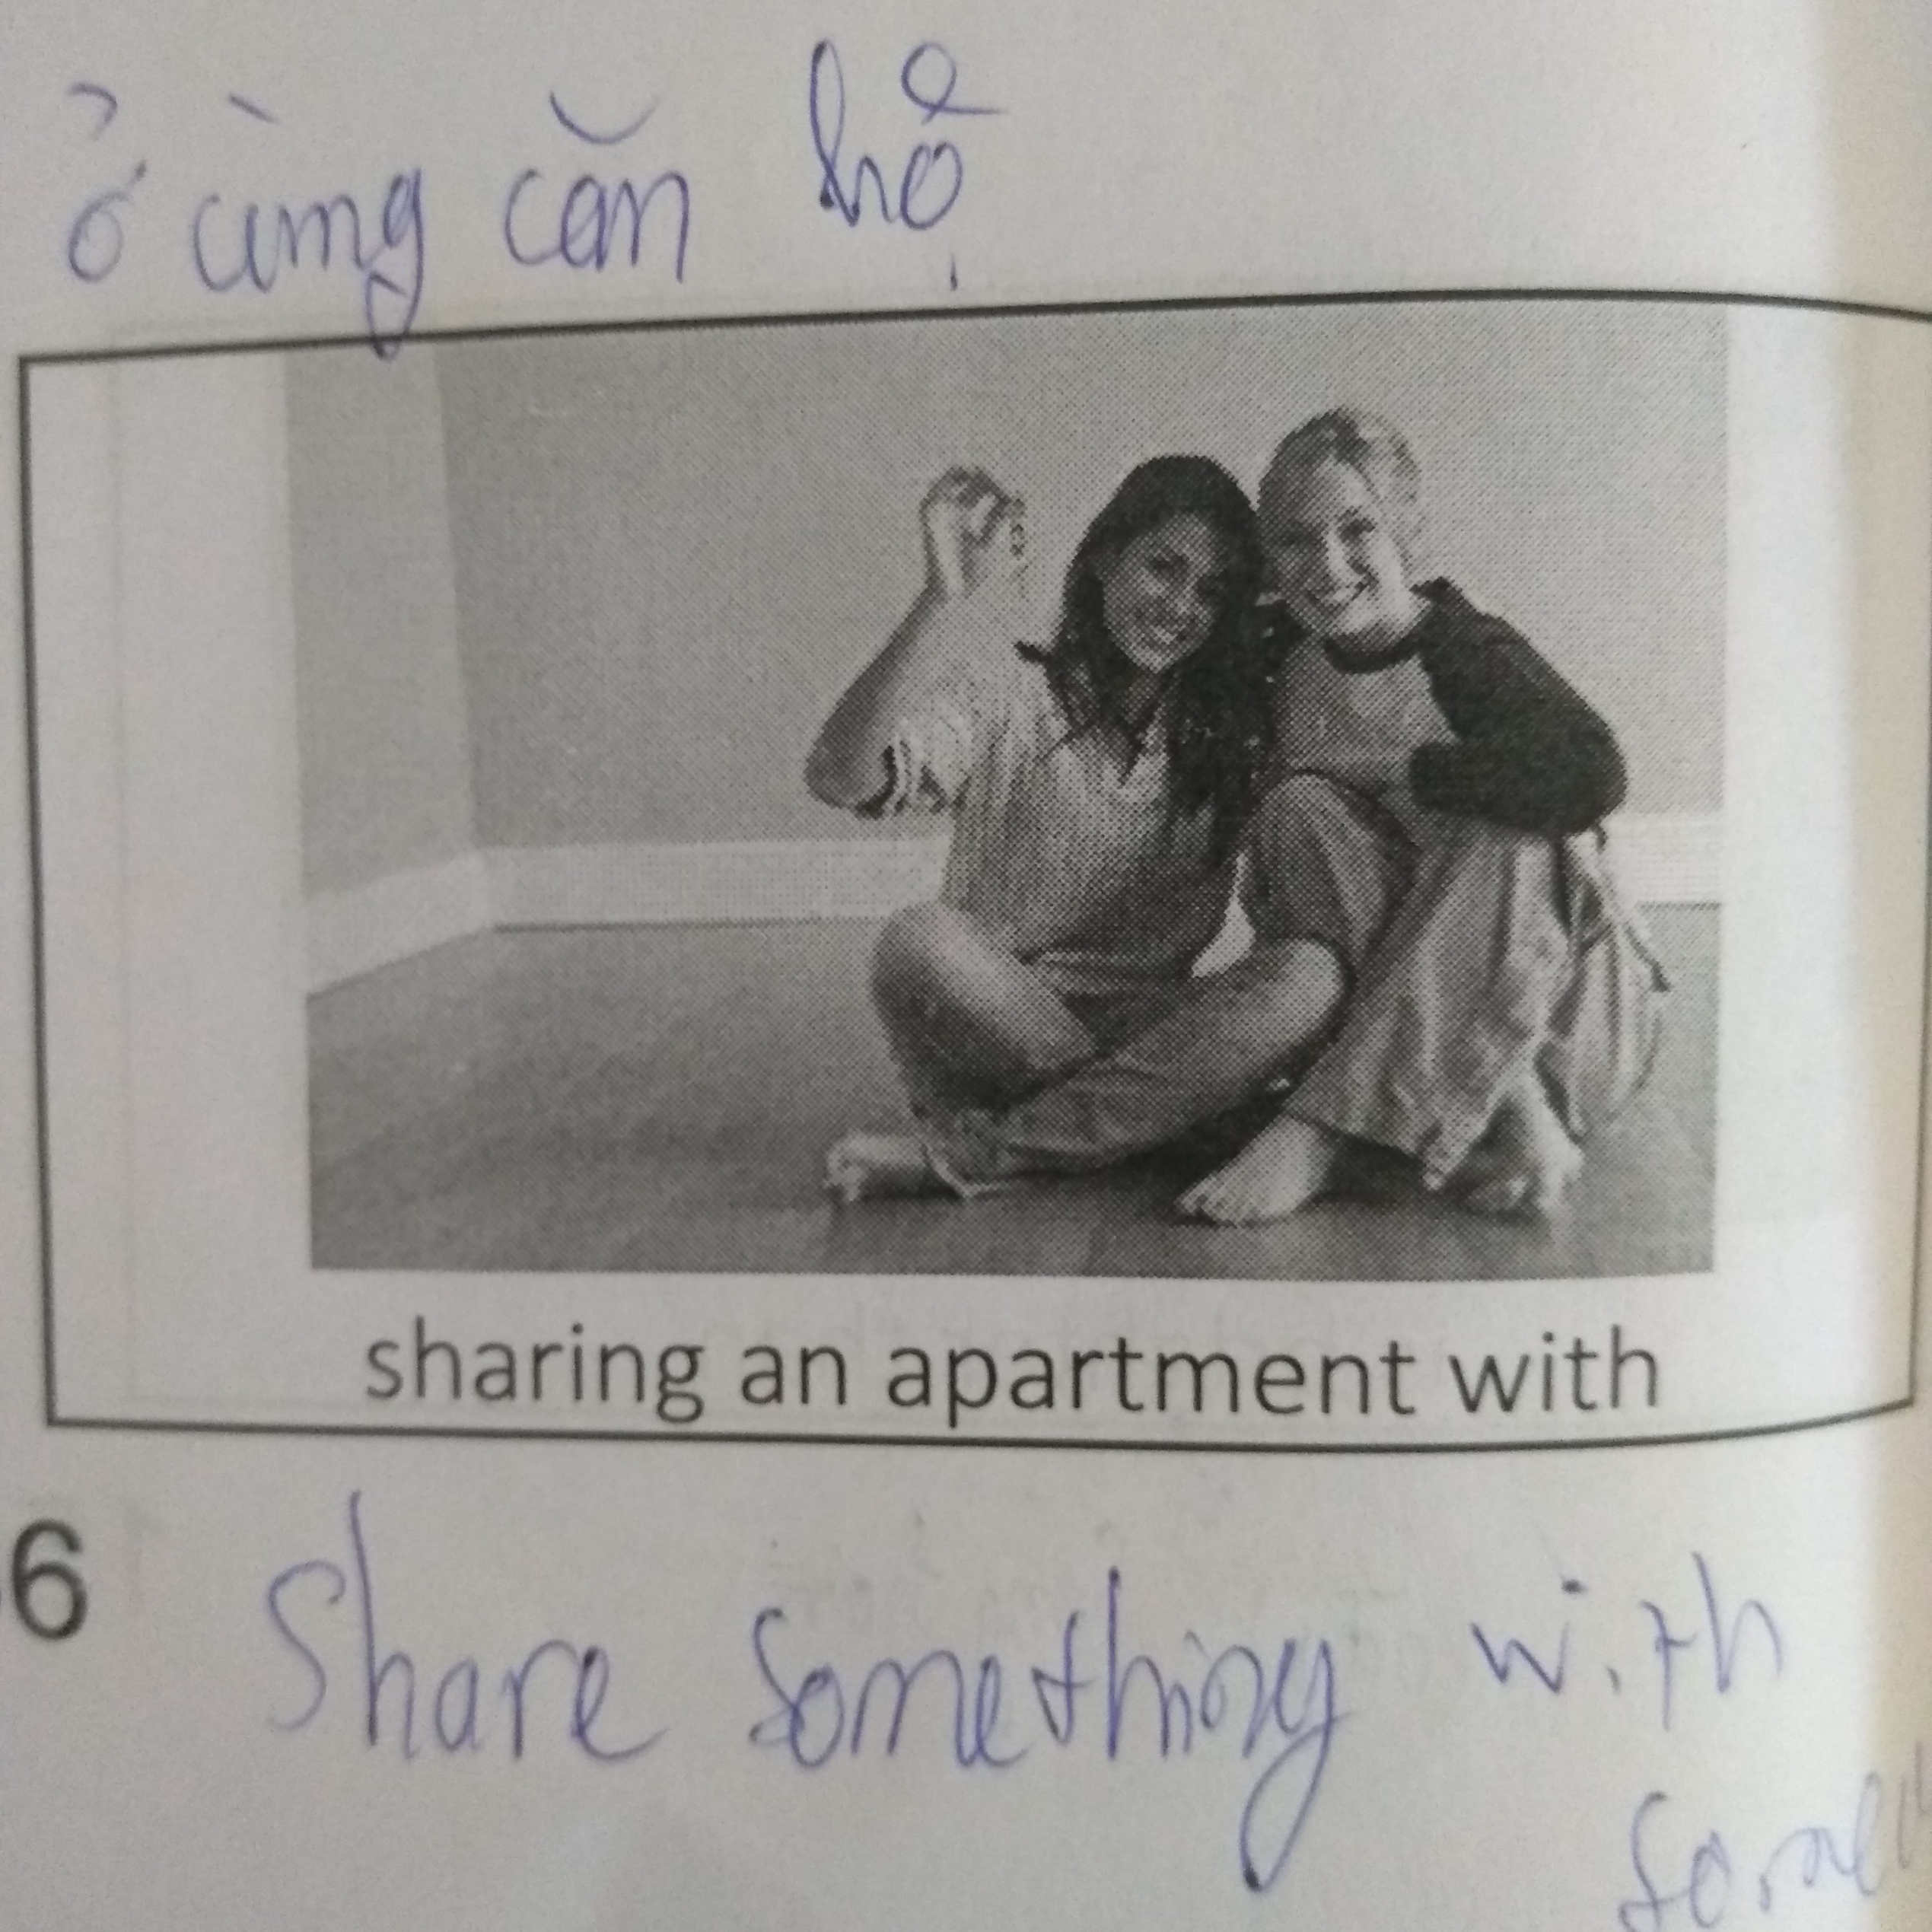 ở cùng căn hộ
sharing an apartment with
6
Share something with